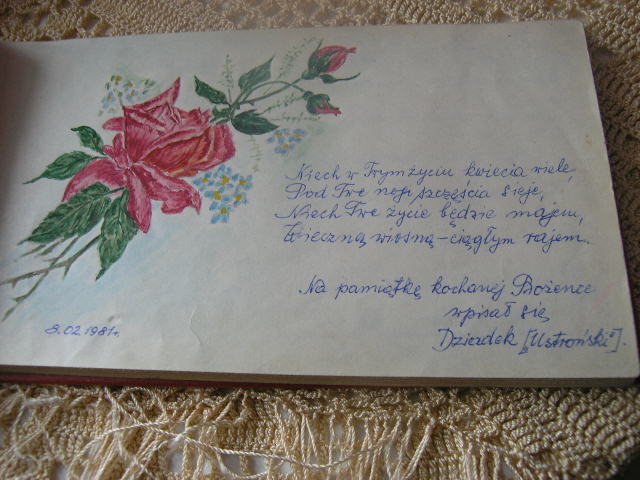 Niech w Twym życiu kwiecia wiele,
Pod Twe nogi szczęścia sieje,
Niech Twe życie będzie majem,
Wieczną wiosną - ciągłym rajem.
Na pamiątkę kochanej Bożence
wpisał się
Dziadek ["Ustroński"].
8.02.1981r.